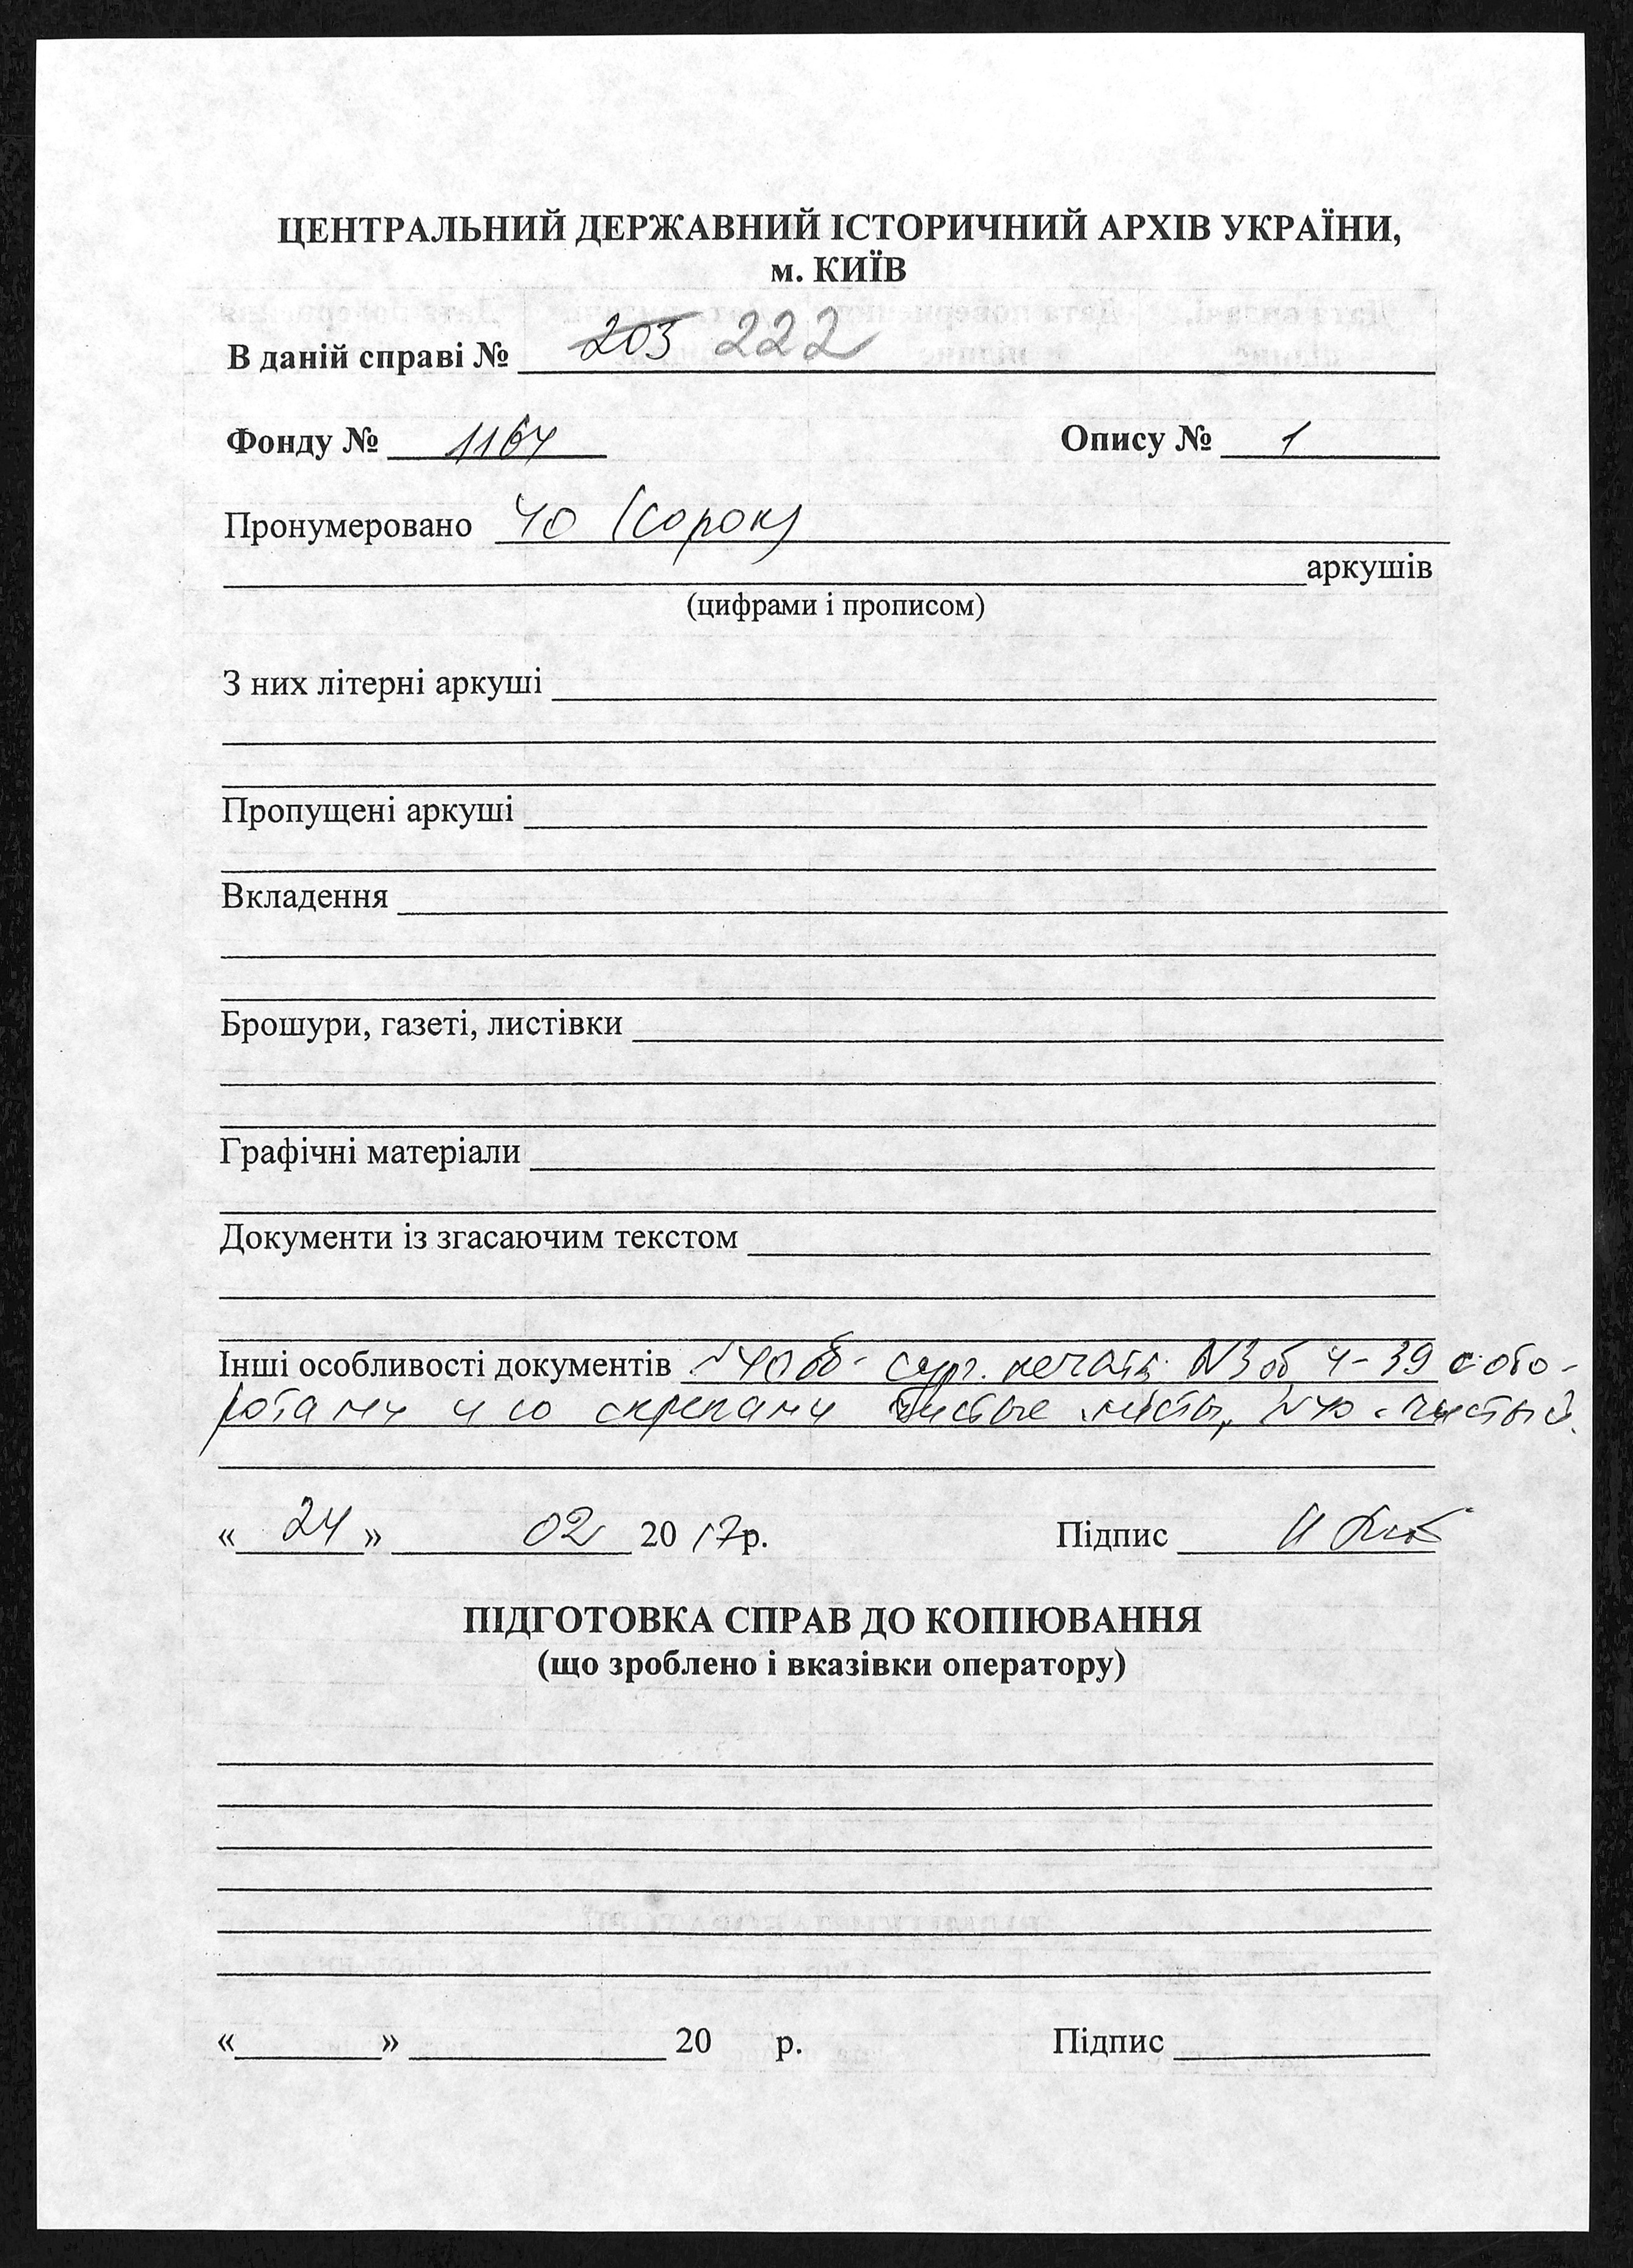 ЦЕНТРАЛЬНИЙ ДЕРЖАВНИЙ ІСТОРИЧНИЙ АРХІВ УКРАЇНИ,
м. КИЇВ
В даній справі № 203 222
Фонду № 1164 Опису № 1
Пронумеровано 40 (сорок)
аркушів
(цифрами і прописом)
З них літерні аркуші
Пропущені аркуші
Вкладення
Брошури, газеті, листівки
Графічні матеріали
Документи із згасаючим текстом
Інші особливості документів N40об - сург. печать. N3об 4-39 с обо-
ротами и со скрепами чистые листы, N40 - чистый.
« 24 » 02 20 17р. Підпис
ПІДГОТОВКА СПРАВ ДО КОПІЮВАННЯ
(що зроблено і вказівки оператору)
« » 20 р. Підпис